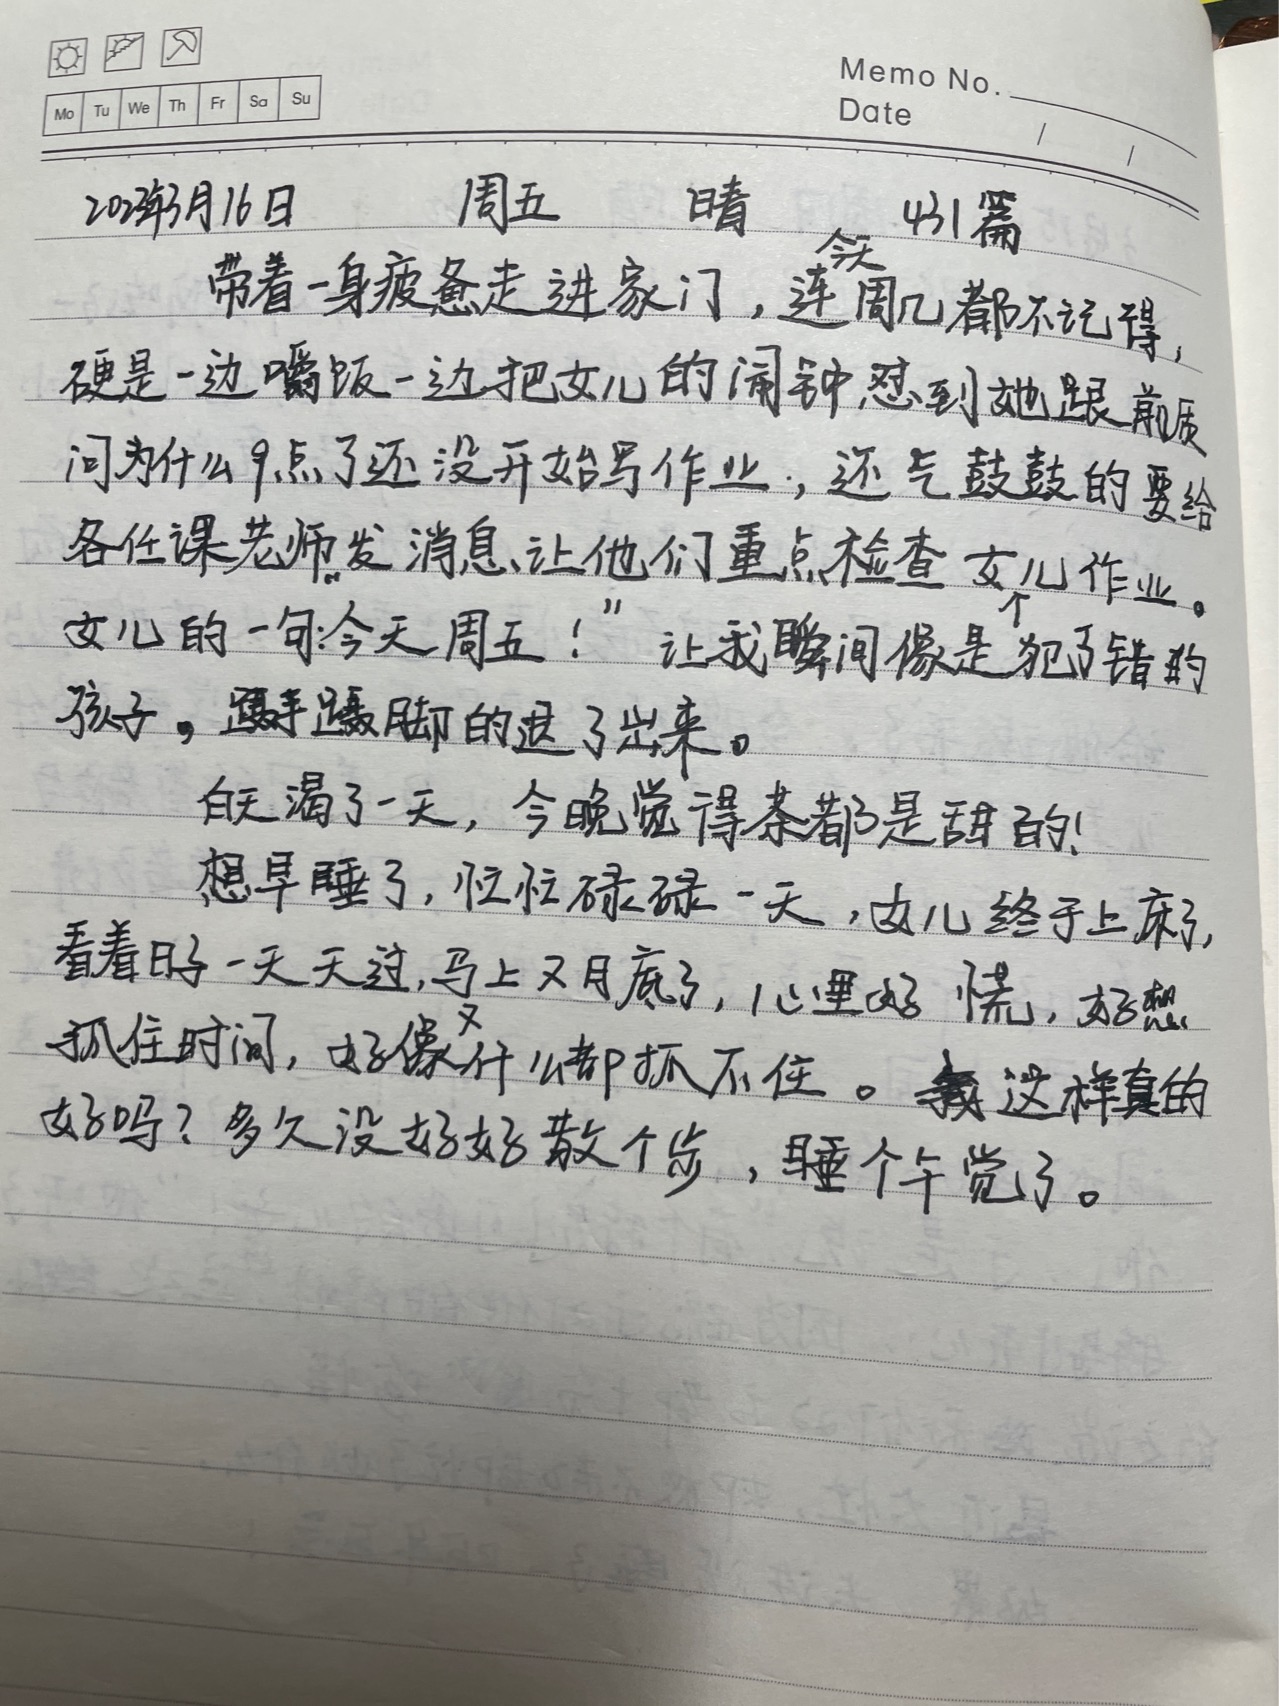 Mo Tu We Th Fr Sa Su
Memo No.
Date / /
2023年3月16日 周五 晴 431篇
带着一身疲惫走进家门，连今天周几都不记得，
硬是一边嚼饭一边把女儿的闹钟怼到她跟前质
问为什么9点了还没开始写作业，还气鼓鼓的要给
各任课老师发消息、让他们重点检查女儿作业。
女儿的一句:“今天周五！”让我瞬间像是犯了错的
孩子，蹑手蹑脚的退了出来。
白天渴了一天，今晚觉得茶都是甜的！
想早睡了，忙忙碌碌一天，女儿终于上床了，
看着日子一天天过，马上又月底了，心里好慌，好想
抓住时间，好像又什么都抓不住。这样真的
好吗？多久没好好散个步，睡个午觉了。